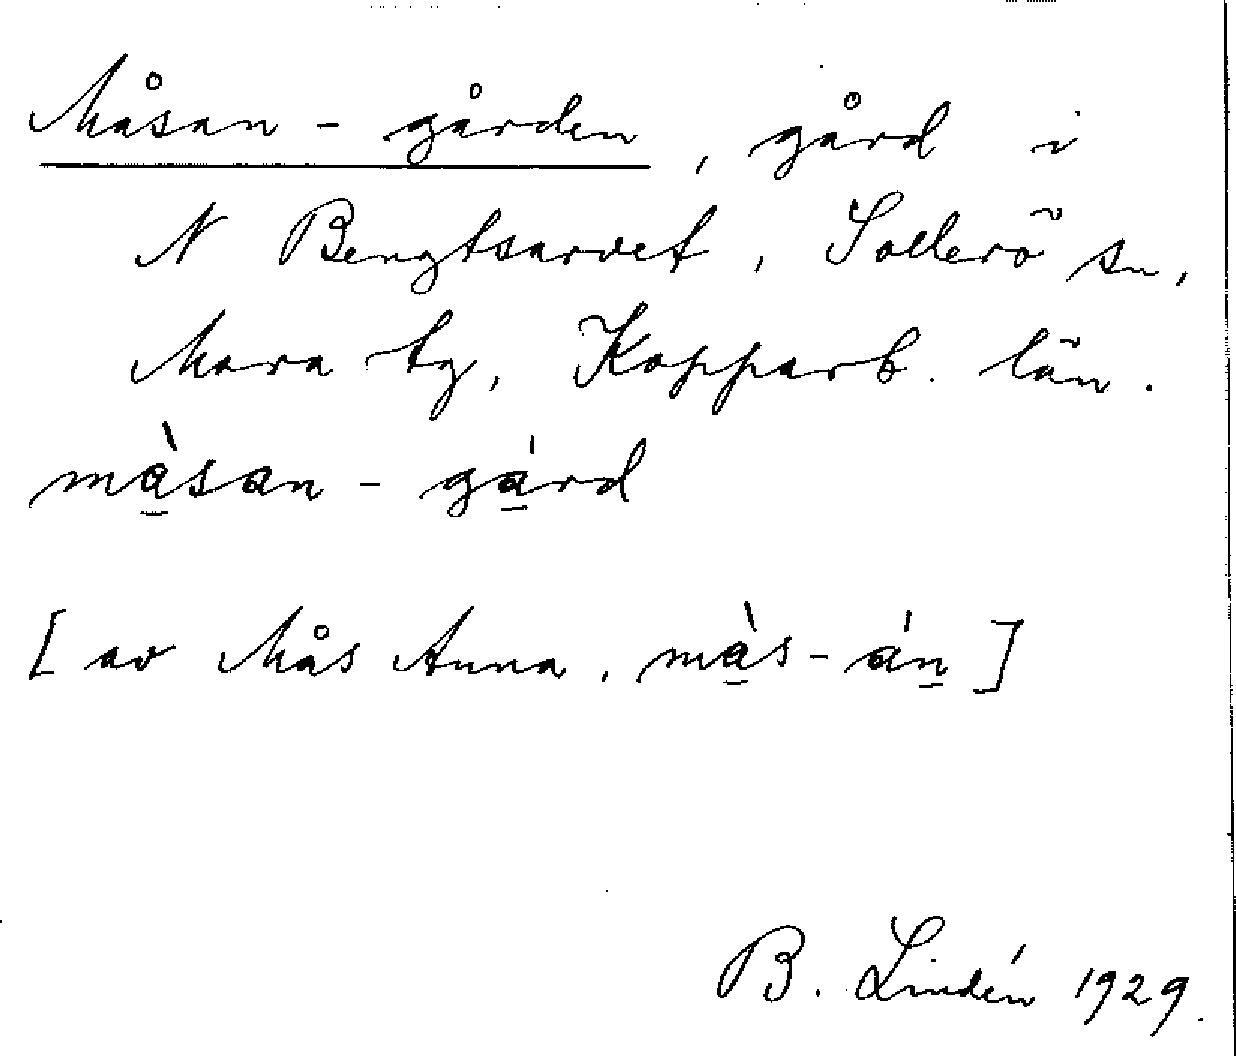 Måsan - gården, gård i
N Bengtsarvet, Sollerö sn,
Mora tg, Kopparb. län.
mà̱san - gá̱rd
[ av Mås Anna, mà̱s - áṉ ]
B. Lindén 1929.